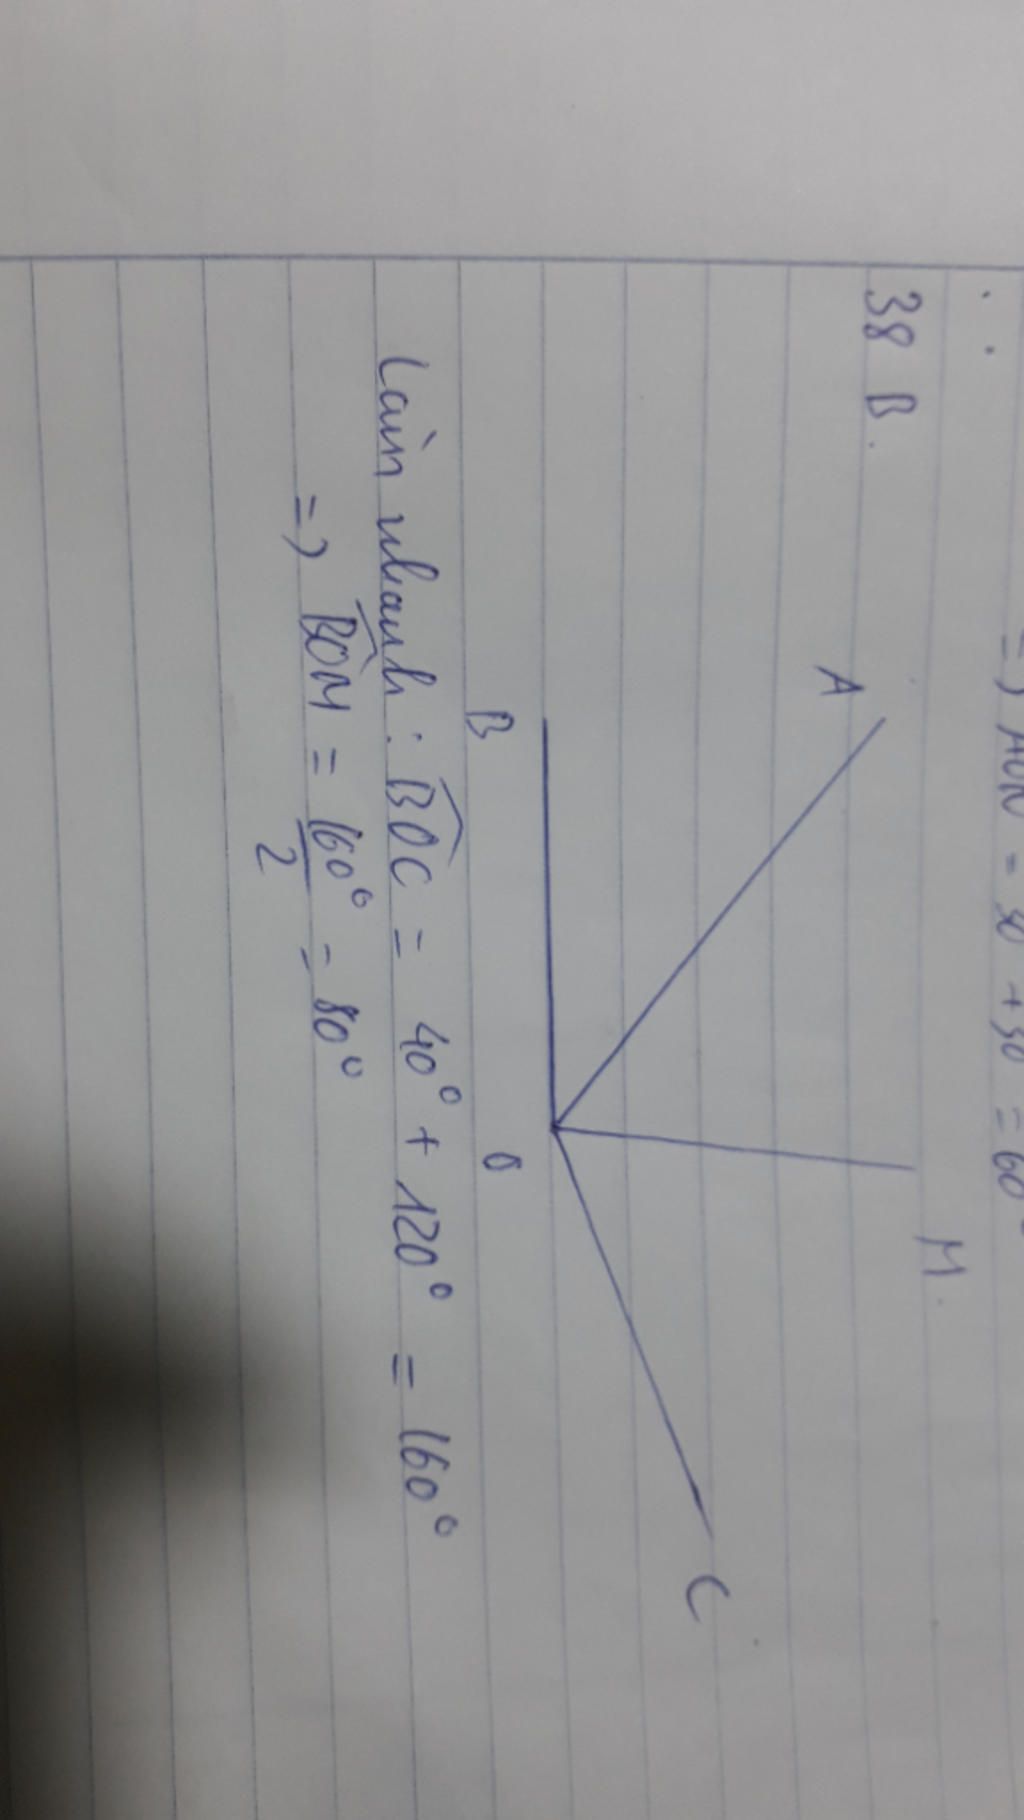 =) AON = 30 + 30 = 60°
38 B.
A
M.
C
B
O
Làm nhanh: BOC = 40° + 120° = 160°
=) BOM = 160° = 80°
2